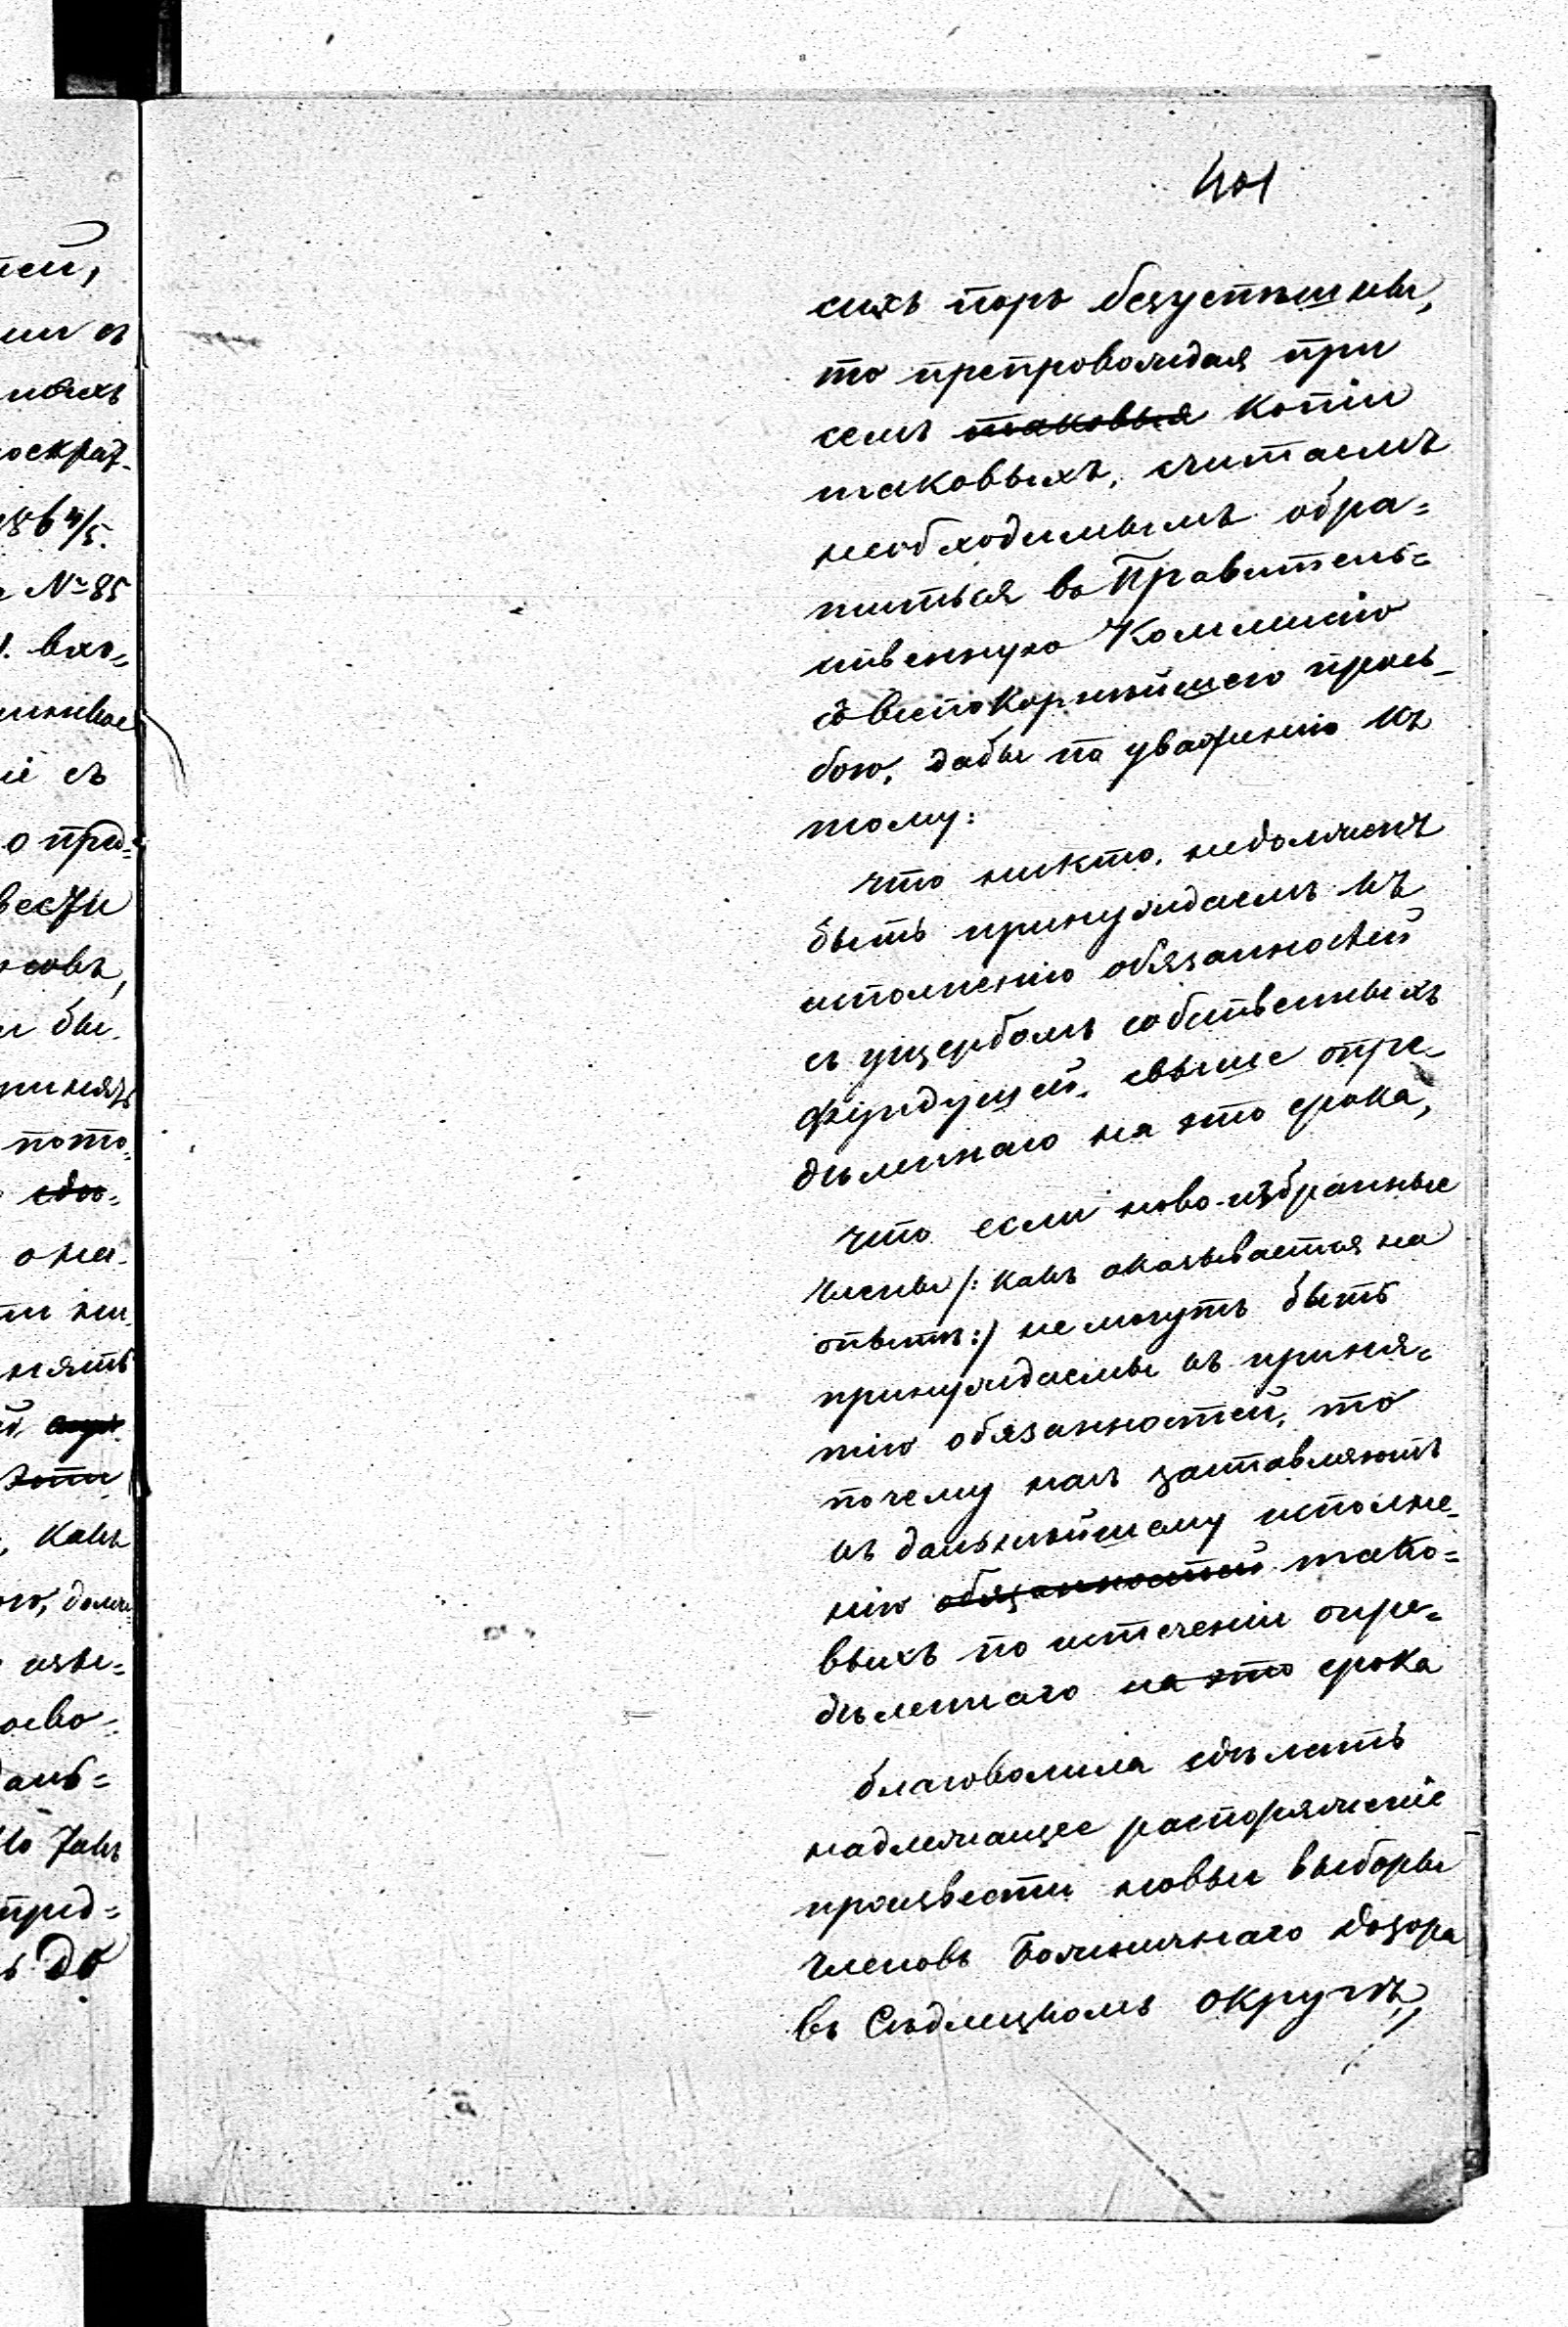 401
сихъ поръ безуспѣшны,
то препровождая при
семъ таковыя копіи
таковыхъ, считаемъ
необходимымъ обра=
титься во Правитель=
ственную Коммисію
со всепокорнѣйшею прось-
бою, дабы по уваженію къ
тому:
что никто, недолженъ
быть принуждаемъ къ
исполненію обязанностей
съ ущербомъ собственныхъ
свыше опре-
дѣленнаго на это срока,
что если ново-избранные
члены /: какъ оказывается на
опытѣ :/ не могутъ быть
принуждаемы къ приня=
тію обязанностей, то
почему насъ заставляютъ
къ дальнѣйшему исполне-
нію обязанностей тако=
выхъ по истеченіи опре=
дѣленнаго на это срока
благоволила сдѣлать
надлежащее распоряженіе
произвести новыи выборы
членовъ Божничнаго дозора
въ Сѣдлецкомъ округѣ,
тей,
ми съ
оскрат-
186 4/5.
№ 85
вхо=
іе съ
о пред=
вести
совъ,
бы
принять
пото=
сдѣ=
она
нять
эти
какъ
изы=
даль=
такъ
пред=
до